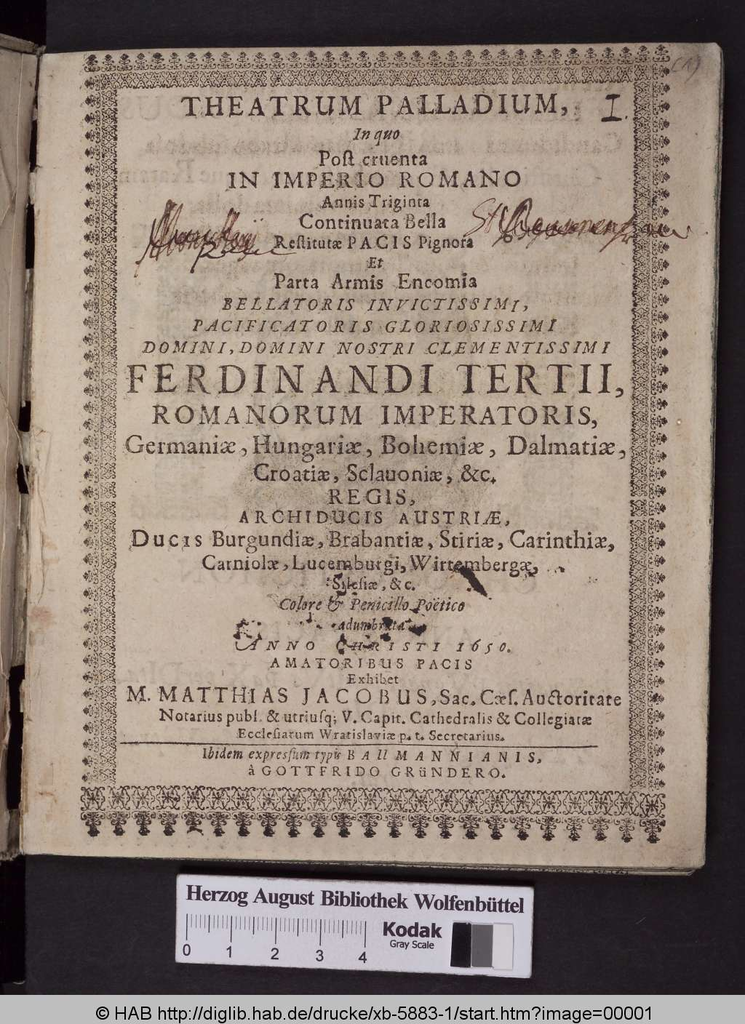 (1)
THEATRUM PALLADIUM, I.
In quo
Post cruenta
IN IMPERIO ROMANO
Annis Triginta
Continuata Bella
Restitutæ PACIS Pignora
Et
Parta Armis Encomia
BELLATORIS INVICTISSIMI,
PACIFICATORIS GLORIOSISSIMI
DOMINI, DOMINI NOSTRI CLEMENTISSIMI
FERDINANDI TERTII,
ROMANORUM IMPERATORIS,
Germaniæ, Hungariæ, Bohemiæ, Dalmatiæ,
Croatiæ, Sclavoniæ, &c.
REGIS,
ARCHIDUCIS AUSTRIÆ,
Ducis Burgundiæ, Brabantiæ, Stiriæ, Carinthiæ,
Carniolæ, Lucemburgi, Wirtembergæ,
Silesiæ, &c.
Colore & Penicillo Poëtico
adumbrata
ANNO CHRISTI 1650.
AMATORIBUS PACIS
Exhibet
M. MATTHIAS JACOBUS, Sac. Cæs. Auctoritate
Notarius publ. & utriusq; V. Capit. Cathedralis & Collegiatæ
Ecclesiarum Wratislaviæ p. t. Secretarius.
Ibidem expressum typis BAllMANNIANIS,
à GOTTFRIDO GRüNDERO.
Herzog August Bibliothek Wolfenbüttel
0 1 2 3 4
Kodak
Gray Scale
© HAB http://diglib.hab.de/drucke/xb-5883-1/start.htm?image=00001